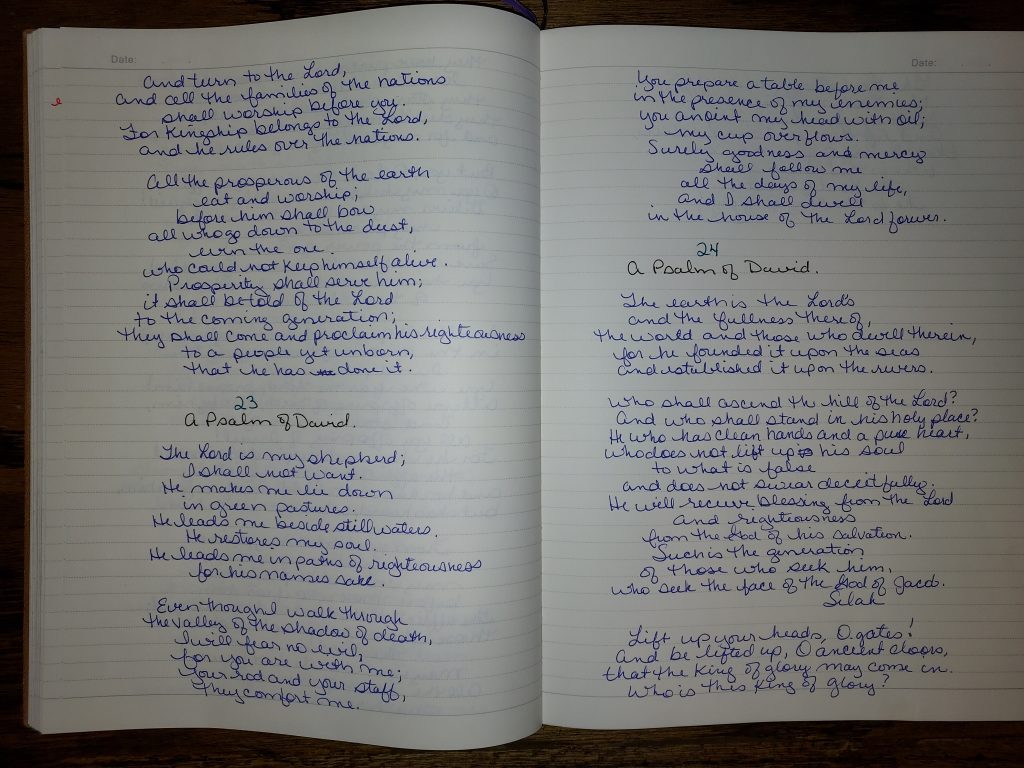 Date:
And turn to the Lord,
and cell the families of the nations
e
shall worship before you.
For Kingship belongs to the Lord,
and he rules over the nations.
All the prosperous of the earth
eat and worship;
before him shall bow
all who go down to the dust,
even the one
who could not keep himself alive.
Prosperity shall serve him;
it shall be told of the Lord
to the coming generation;
they shall come and proclaim his righteousness
to a people yet unborn,
that he has done it.
23
A Psalm of David.
The Lord is my shepherd;
I shall not want.
He makes me lie down
in green pastures.
He leads me beside still waters.
He restores my soul.
He leads me in paths of righteousness
for his names sake.
Even though I walk through
the valley of the shadow of death,
I will fear no evil;
for you are with me;
your rod and your staff,
they comfort me.
Date:
You prepare a table before me
in the presence of my enemies;
you anoint my head with oil;
my cup overflows.
Surely goodness and mercy
shall follow me
all the days of my life,
and I shall dwell
in the house of the Lord forever.
24
A Psalm of David.
The earth is the Lord's
and the fullness there of,
the world and those who dwell therein,
for he founded it upon the seas
and established it upon the rivers.
Who shall ascend the hill of the Lord?
And who shall stand in his holy place?
He who has clean hands and a pure heart,
who does not lift up his soul
to what is false
and does not swear deceitfully.
He will receive blessing from the Lord
and righteousness
from the God of his salvation.
Such is the generation
of those who seek him,
who seek the face of the God of Jacob.
Selah
Lift up your heads, O gates!
And be lifted up, O ancient doors,
that the King of glory may come in.
Who is this King of glory?